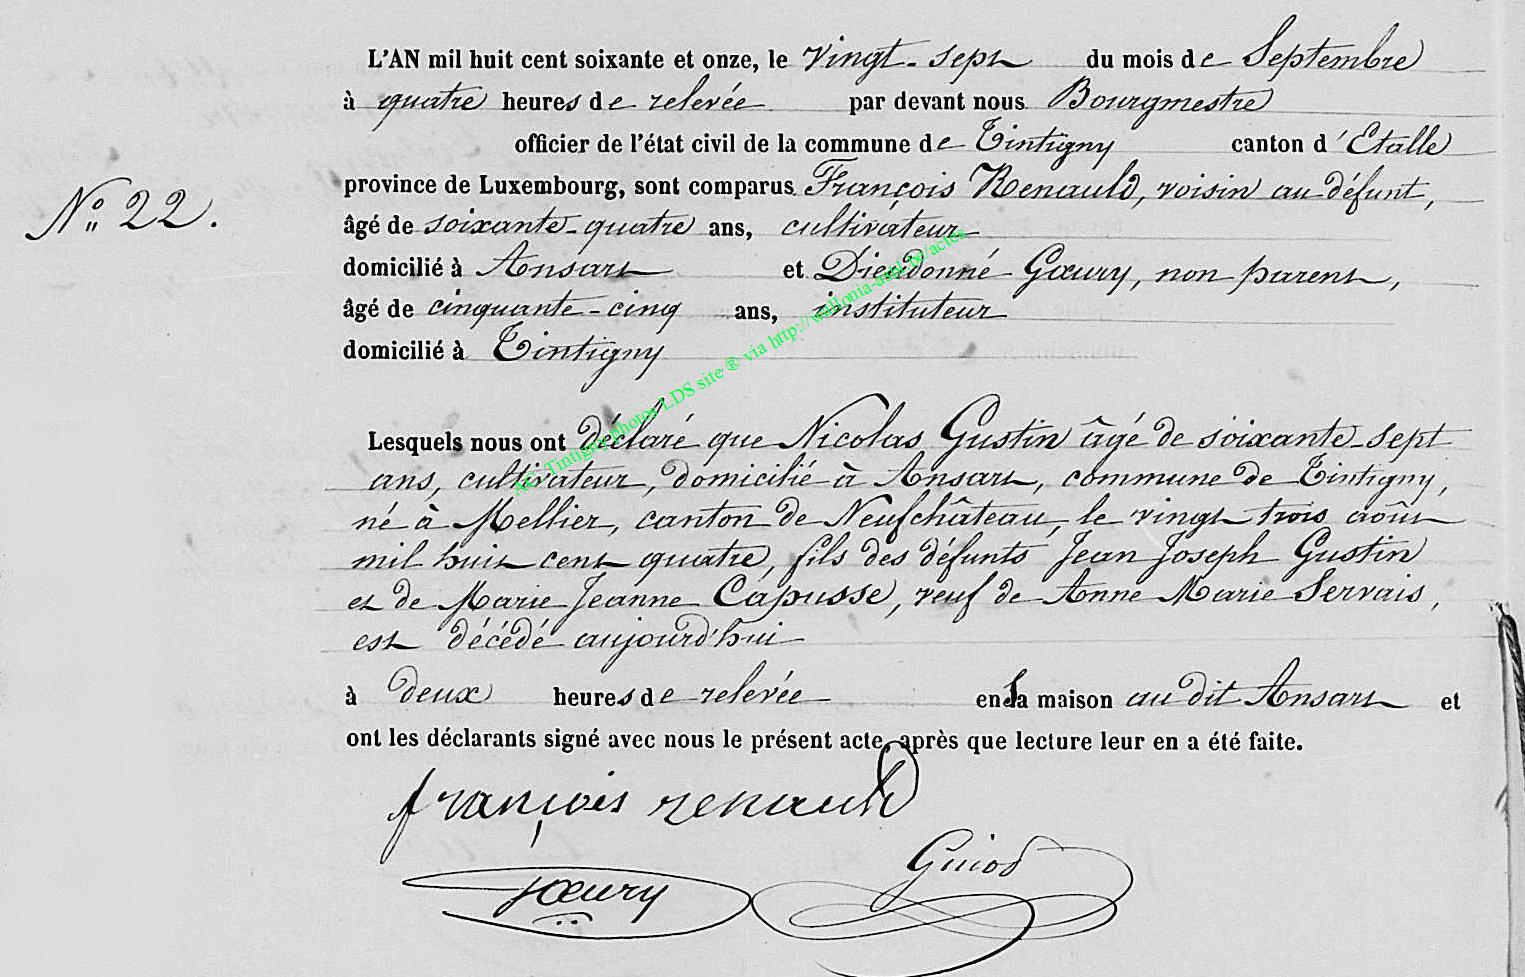 L'AN mil huit cent soixante et onze, le vingt-sept du mois de Septembre
à quatre heures de relevée par devant nous Bourgmestre
officier de l'état civil de la commune de Tintigny canton d'Etalle
province de Luxembourg, sont comparus François Renauld, voisin au défunt,
N° 22.
âgé de soixante-quatre ans, cultivateur
domicilié à Ansart et Dieudonné Gœury, non parent,
âgé de cinquante-cinq ans, instituteur
domicilié à Tintigny
AC Tintigny photos LDS site ® via http://wallonia-asbl.be/actes
Lesquels nous ont déclaré que Nicolas Gustin âgé de soixante-sept
ans, cultivateur, domicilié à Ansart, commune de Tintigny,
né à Mellier, canton de Neufchâteau, le vingt trois août
mil huit cent quatre, fils des défunts Jean Joseph Gustin
et de Marie Jeanne Capusse, veuf de Anne Marie Servais,
est décédé aujourd'hui
à deux heures de relevée en sa maison au dit Ansart et
ont les déclarants signé avec nous le présent acte, après que lecture leur en a été faite.
françois renauld
Guiod
Gœury